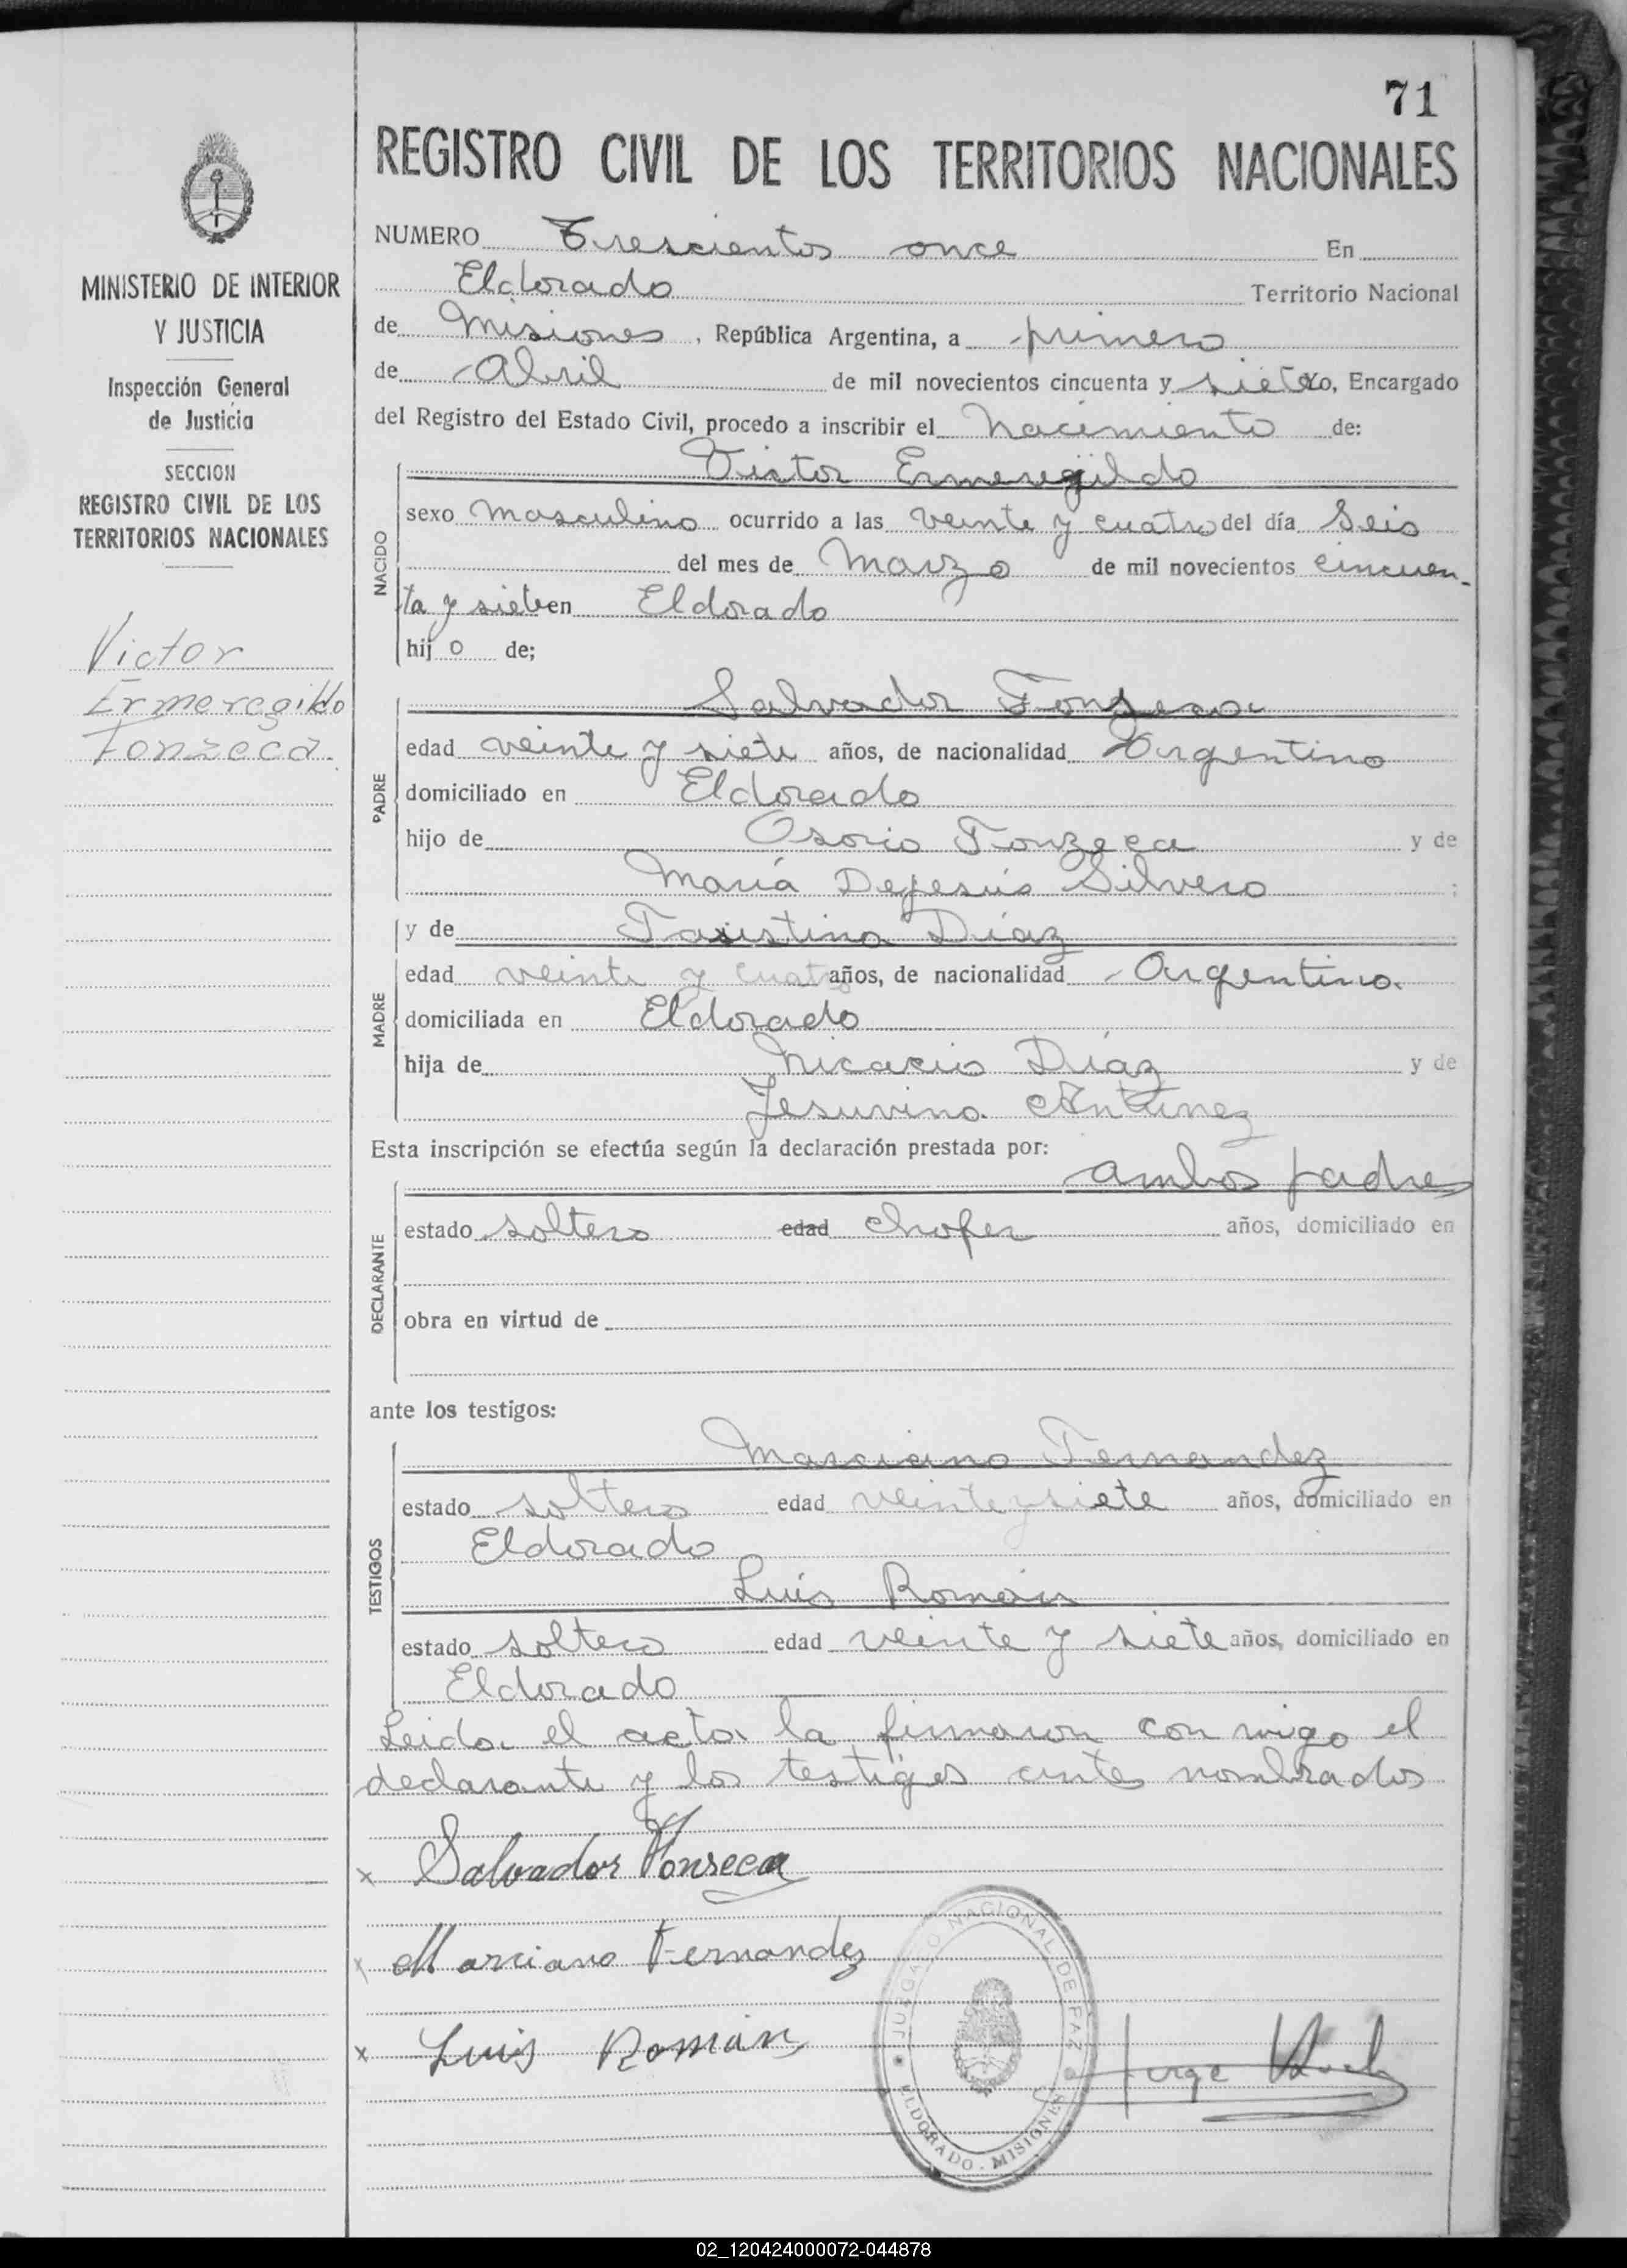 71
REGISTRO CIVIL DE LOS TERRITORIOS NACIONALES
MINISTERIO DE INTERIOR
Y JUSTICIA
Inspección General
de Justicia
SECCION
REGISTRO CIVIL DE LOS
TERRITORIOS NACIONALES
Victor
Ermeregildo
Fonzeca
NUMERO Trescientos once En
Eldorado Territorio Nacional
de Misiones, República Argentina, a primero
de Abril de mil novecientos cincuenta y siete yo, Encargado
del Registro del Estado Civil, procedo a inscribir el Nacimiento de:
NACIDO
Victor Ermeregildo
sexo masculino ocurrido a las veinte y cuatro del día Seis
del mes de Marzo de mil novecientos cincuen-
ta y siete en Eldorado
hij o de;
PADRE
Salvador Fonzeca
edad veinte y siete años, de nacionalidad Argentino
domiciliado en Eldorado
hijo de Osorio Fonzeca y de
María Dejesús Silvero ;
MADRE
y de Faustina Díaz
edad veinte y cuatro años, de nacionalidad Argentina
domiciliada en Eldorado
hija de Nicacio Díaz y de
Jesuvina Antunez
Esta inscripción se efectúa según la declaración prestada por:
DECLARANTE
ambos padres
estado soltero edad chofer años, domiciliado en
obra en virtud de
ante los testigos:
TESTIGOS
Marciano Fernandez
estado soltero edad veinte y siete años, domiciliado en
Eldorado
Luis Román
estado soltero edad veinte y siete años, domiciliado en
Eldorado
Leida el acta la firmaron con migo el
declarante y los testigos antes nombrados
x Salvador Fonseca
x Marciano Fernandez
x Luis Román
JUZGADO NACIONAL DE PAZ
ELDORADO - MISIONES
Jorge
02_120424000072-044878